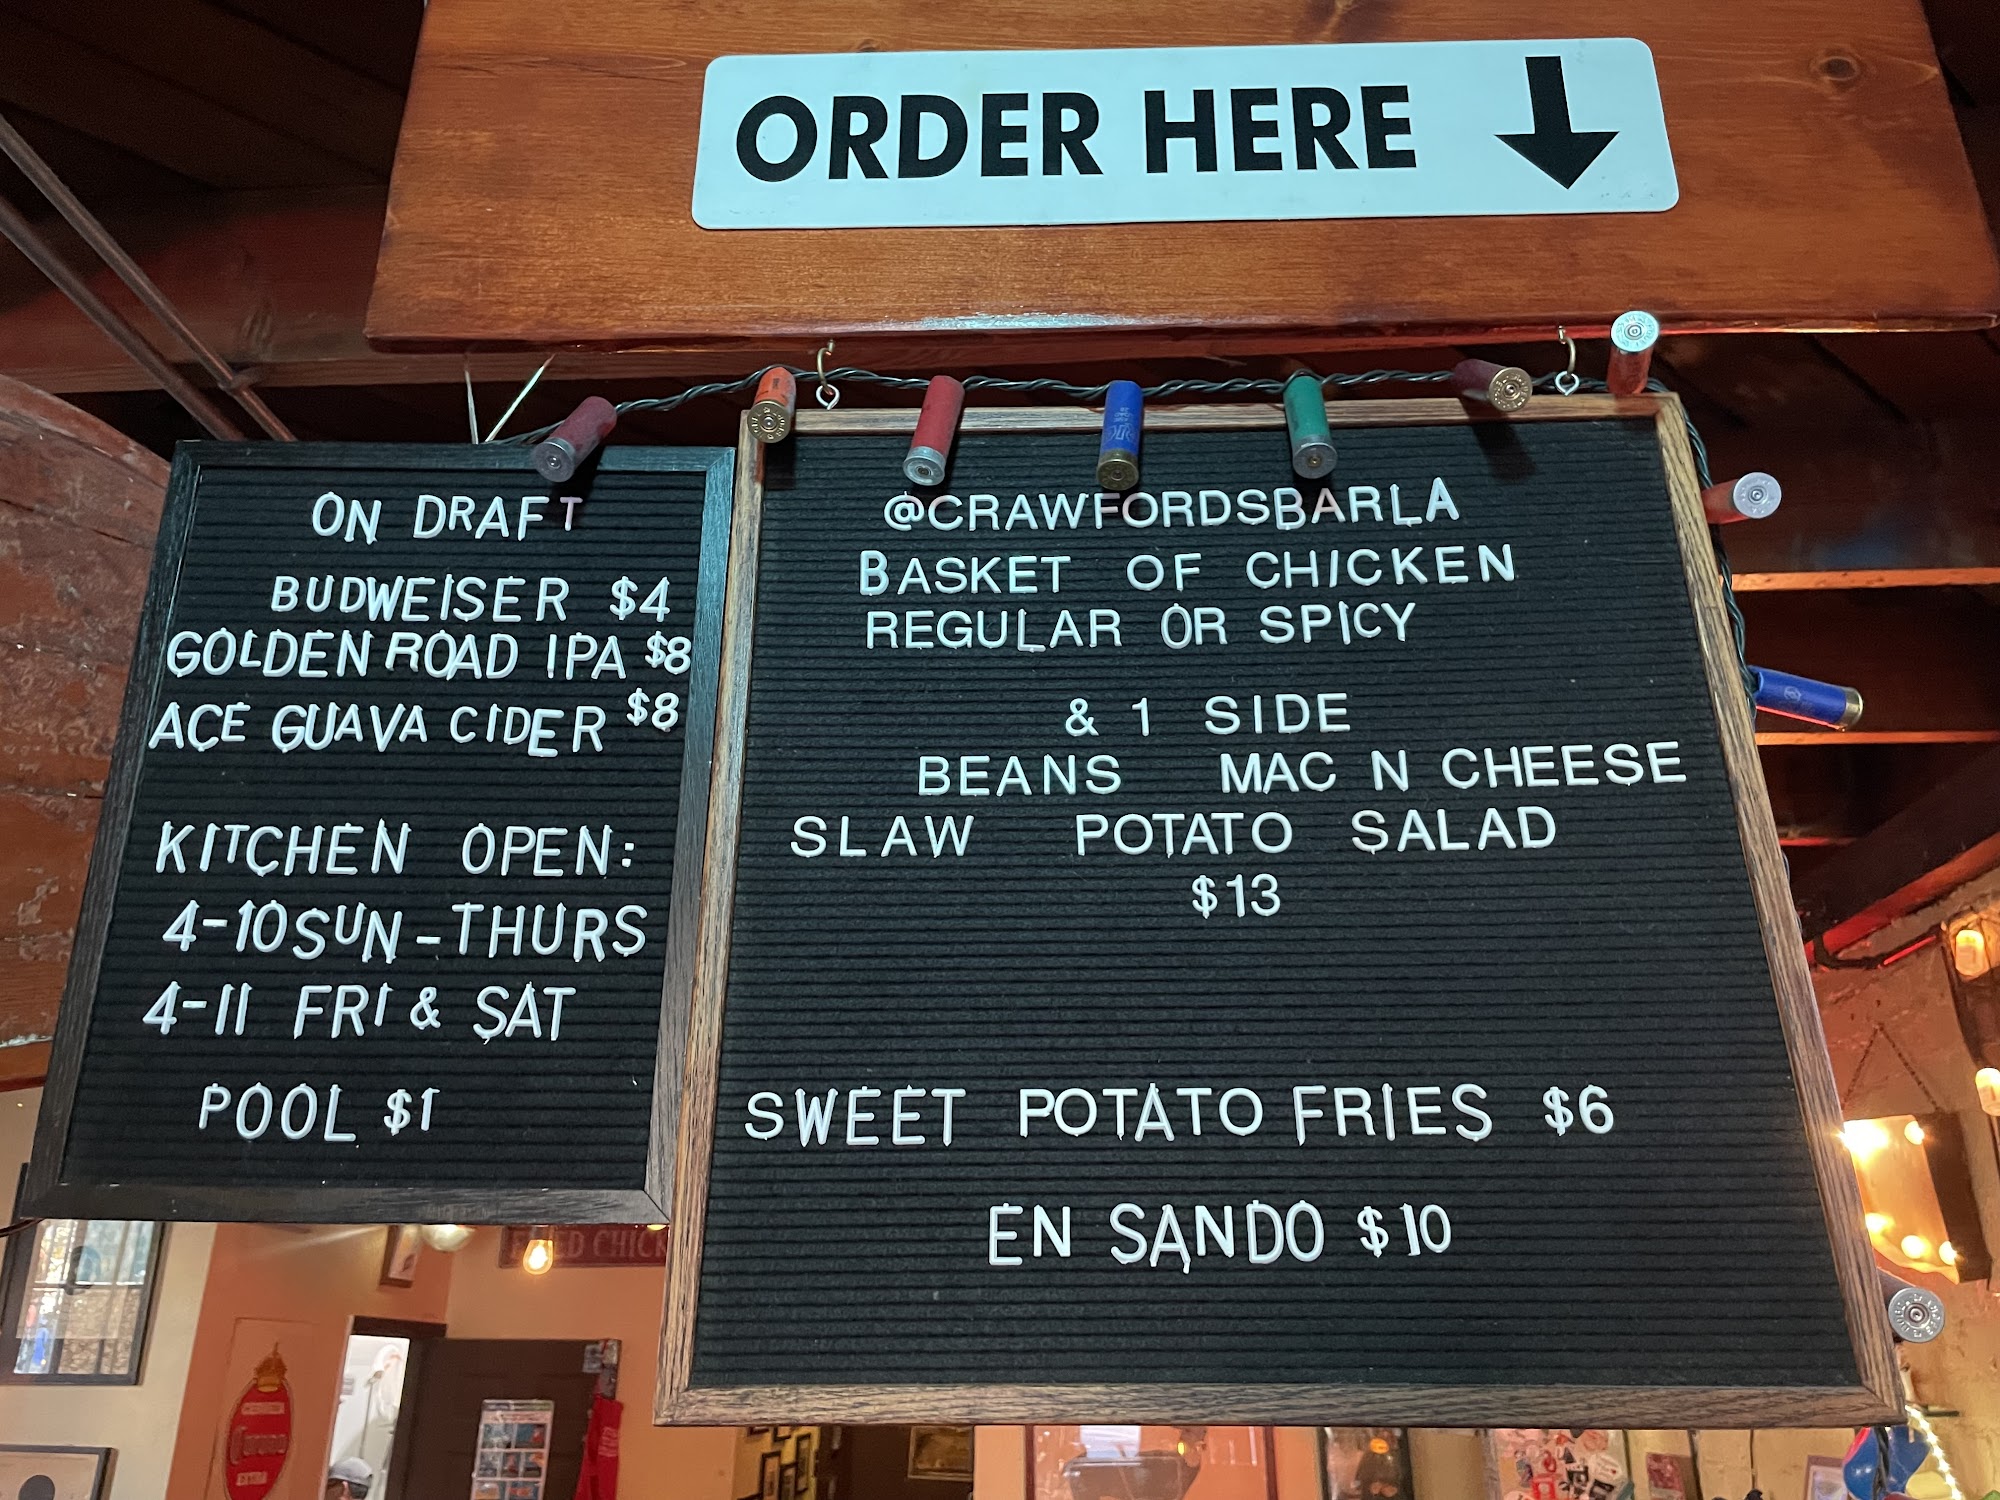 ORDER HERE
ON DRAFT
BUDWEISER $4
GOLDEN ROAD IPA $8
ACE GUAVA CIDER $8
KITCHEN OPEN:
4-10 SUN-THURS
4-11 FRI & SAT
POOL $1
@CRAWFORDSBARLA
BASKET OF CHICKEN
REGULAR OR SPICY
& 1 SIDE
BEANS MAC N CHEESE
SLAW POTATO SALAD
$13
SWEET POTATO FRIES $6
EN SANDO $10
Corona